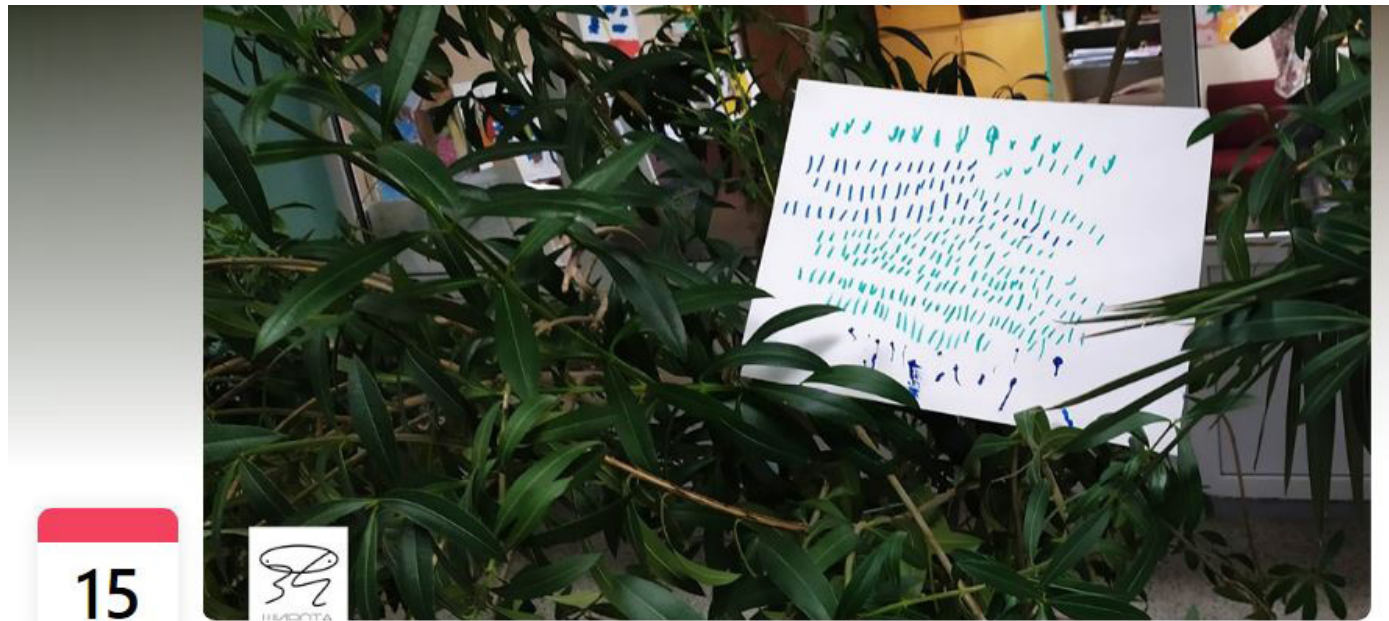 15
ШИРОТА